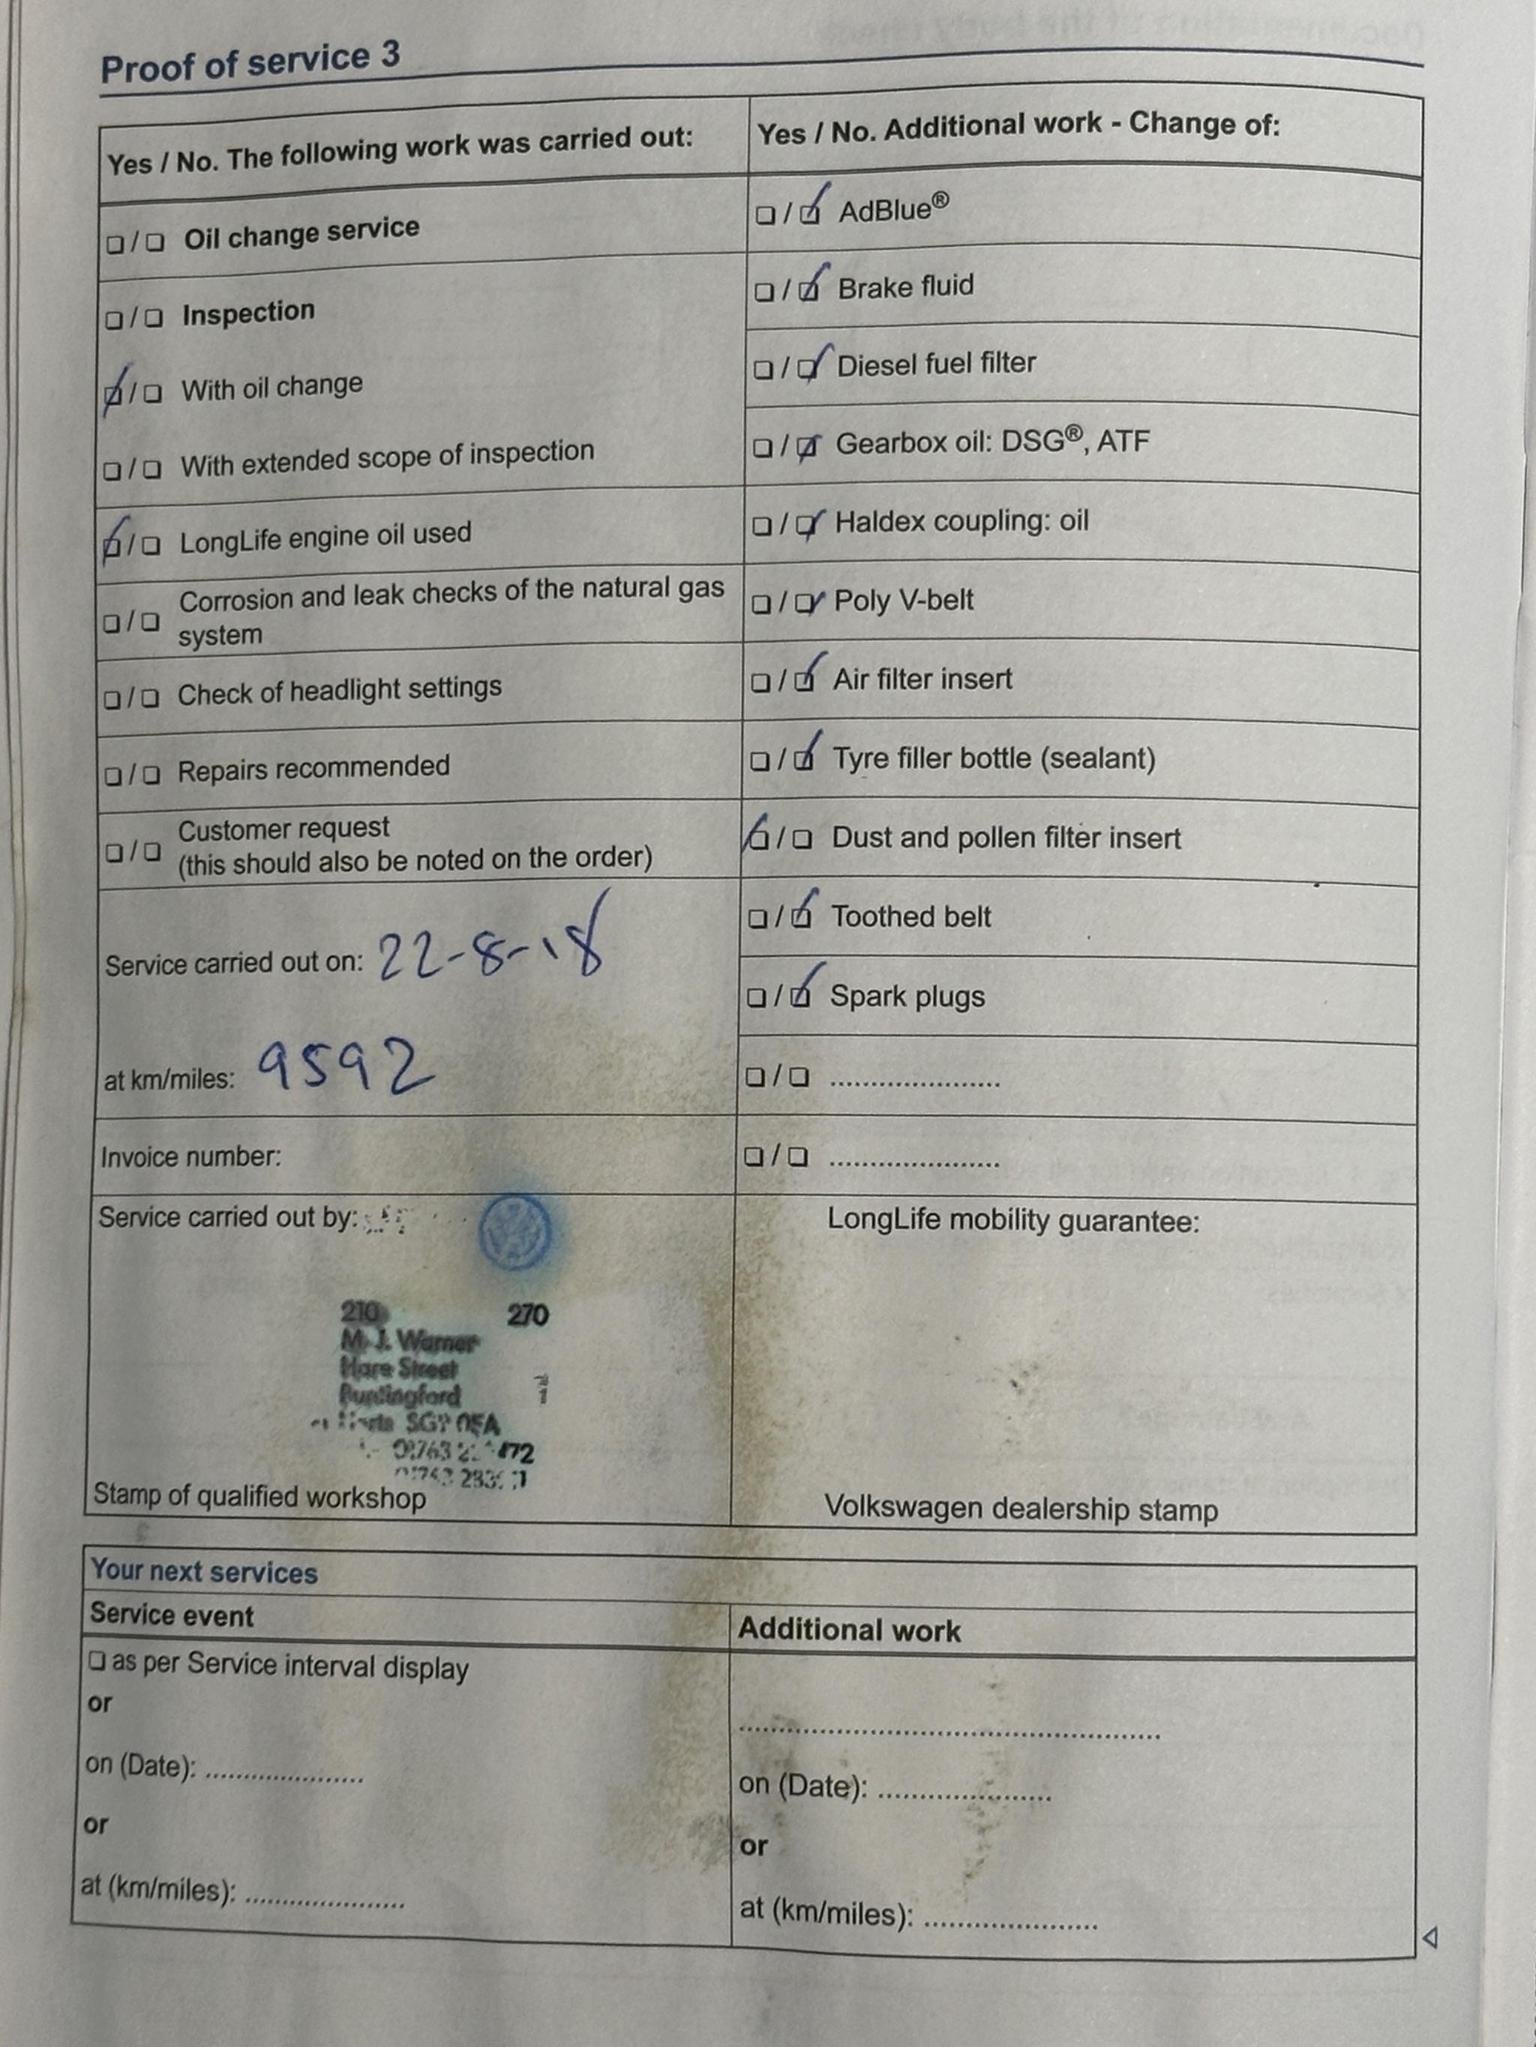 Proof of service 3
Yes / No. The following work was carried out:
❏ / ❏ Oil change service
❏ / ❏ Inspection
❏ / ❏ With oil change
❏ / ❏ With extended scope of inspection
❏ / ❏ LongLife engine oil used
❏ / ❏ Corrosion and leak checks of the natural gas
system
❏ / ❏ Check of headlight settings
❏ / ❏ Repairs recommended
❏ / ❏ Customer request
(this should also be noted on the order)
Service carried out on: 22-8-18
at km/miles: 9592
Invoice number:
Service carried out by:
210 270
M. J. Warner
Hare Street
Buntingford
Herts SG9 0EA
01763
01763
Stamp of qualified workshop
Yes / No. Additional work - Change of:
❏ / ❏ AdBlue®
❏ / ❏ Brake fluid
❏ / ❏ Diesel fuel filter
❏ / ❏ Gearbox oil: DSG®, ATF
❏ / ❏ Haldex coupling: oil
❏ / ❏ Poly V-belt
❏ / ❏ Air filter insert
❏ / ❏ Tyre filler bottle (sealant)
❏ / ❏ Dust and pollen filter insert
❏ / ❏ Toothed belt
❏ / ❏ Spark plugs
❏ / ❏ .....................
❏ / ❏ .....................
LongLife mobility guarantee:
Volkswagen dealership stamp
Your next services
Service event
❏ as per Service interval display
or
on (Date): ....................
or
at (km/miles): ....................
Additional work
....................................................
on (Date): .....................
or
at (km/miles): .....................